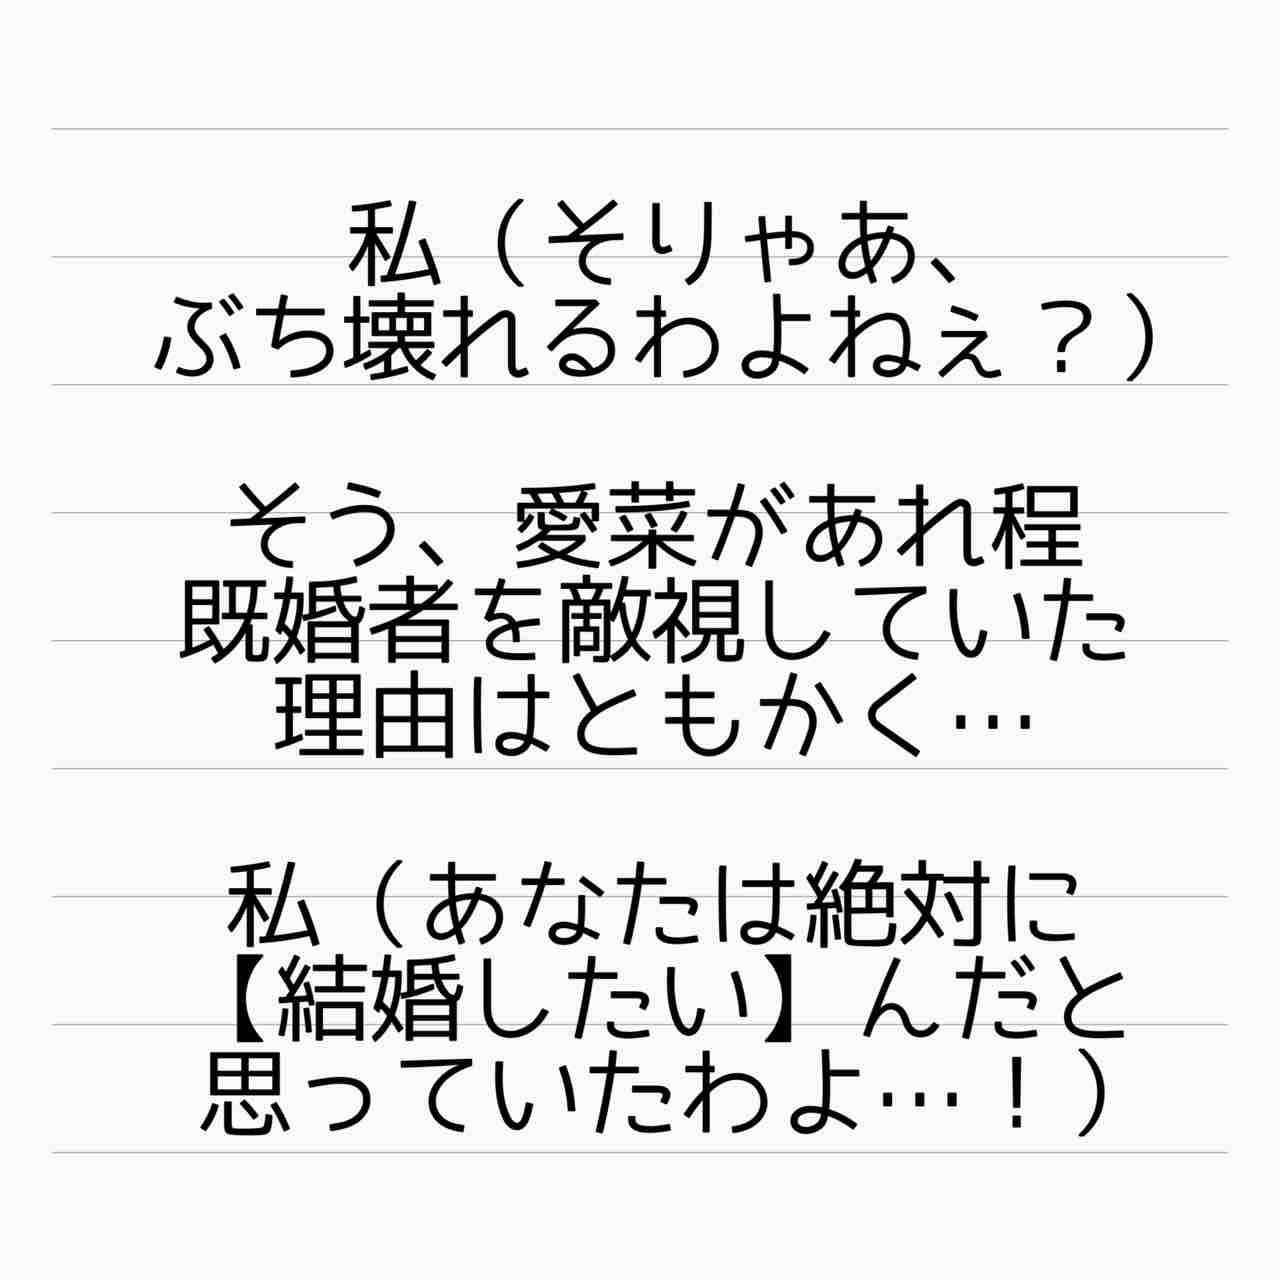 私（そりゃあ、
ぶち壊れるわよねぇ？）
そう、愛菜があれ程
既婚者を敵視していた
理由はともかく…
私（あなたは絶対に
【結婚したい】んだと
思っていたわよ…！）